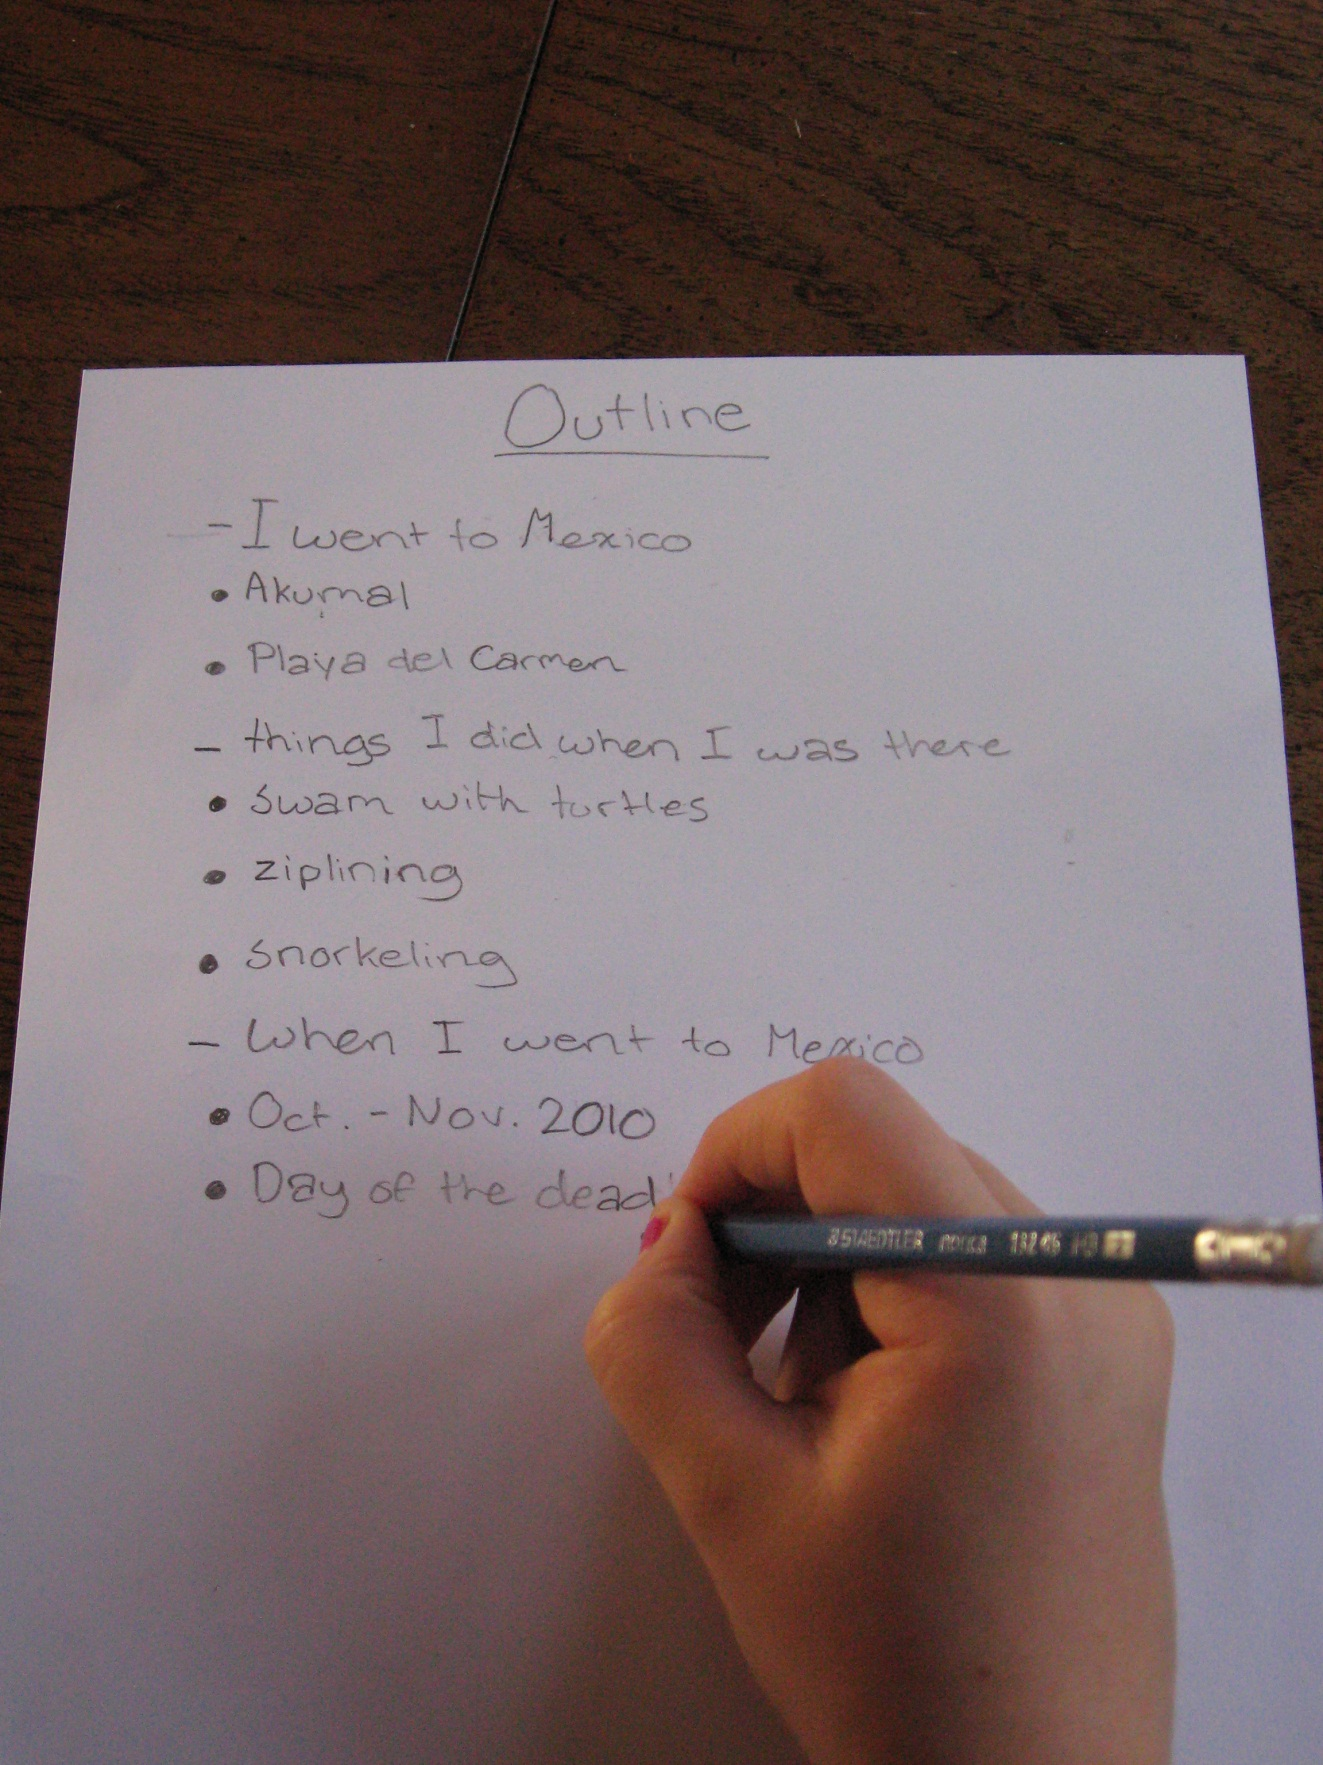 Outline
- I went to Mexico
• Akumal
• Playa del Carmen
- things I did when I was there
• swam with turtles
• ziplining
• snorkeling
- When I went to Mexico
• Oct. - Nov. 2010
• Day of the dead
STAEDTLER 132 46 HB 2